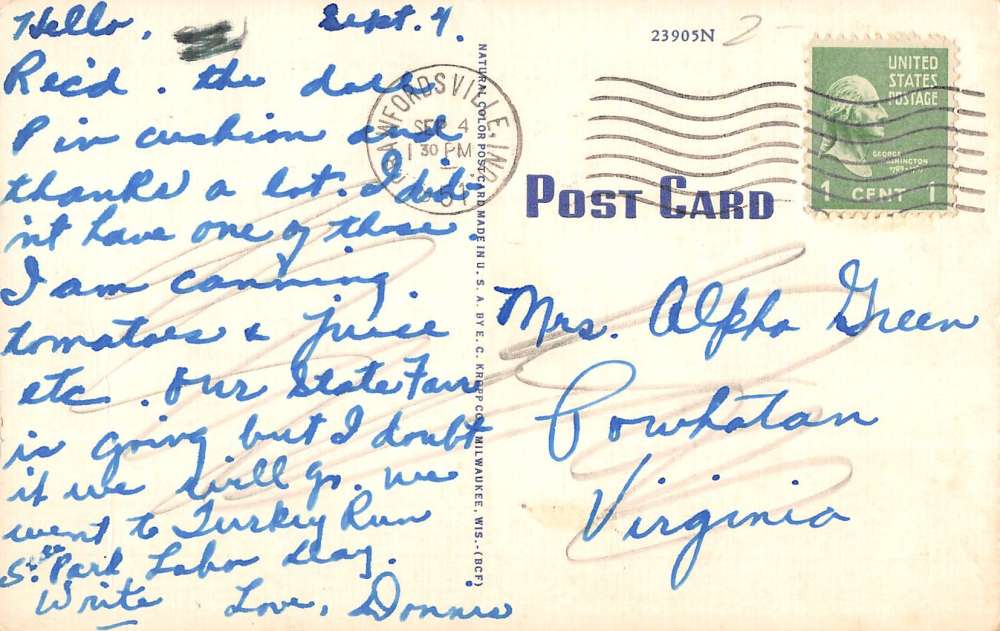 Hello, Sept. 4.
Rec'd. the doll
Pin cushion and
thanks a lot. I did-
n't have one of those.
I am canning
tomatoes & juice
etc. Our State Fair
is going but I doubt
if we will go. We
went to Turkey Run
St. Park Labor Day.
Write Love, Donnis
NATURAL COLOR POST CARD MADE IN U. S. A. BY E. C. KROPP CO., MILWAUKEE, WIS.-(BCF)
23905N
2-
CRAWFORDSVILLE, IND.
SEP 4
1 30 PM
1951
UNITED
STATES
POSTAGE
GEORGE
WASHINGTON
1789-1797
1 CENT 1
POST CARD
Mrs. Alpha Green
Powhatan
Virginia